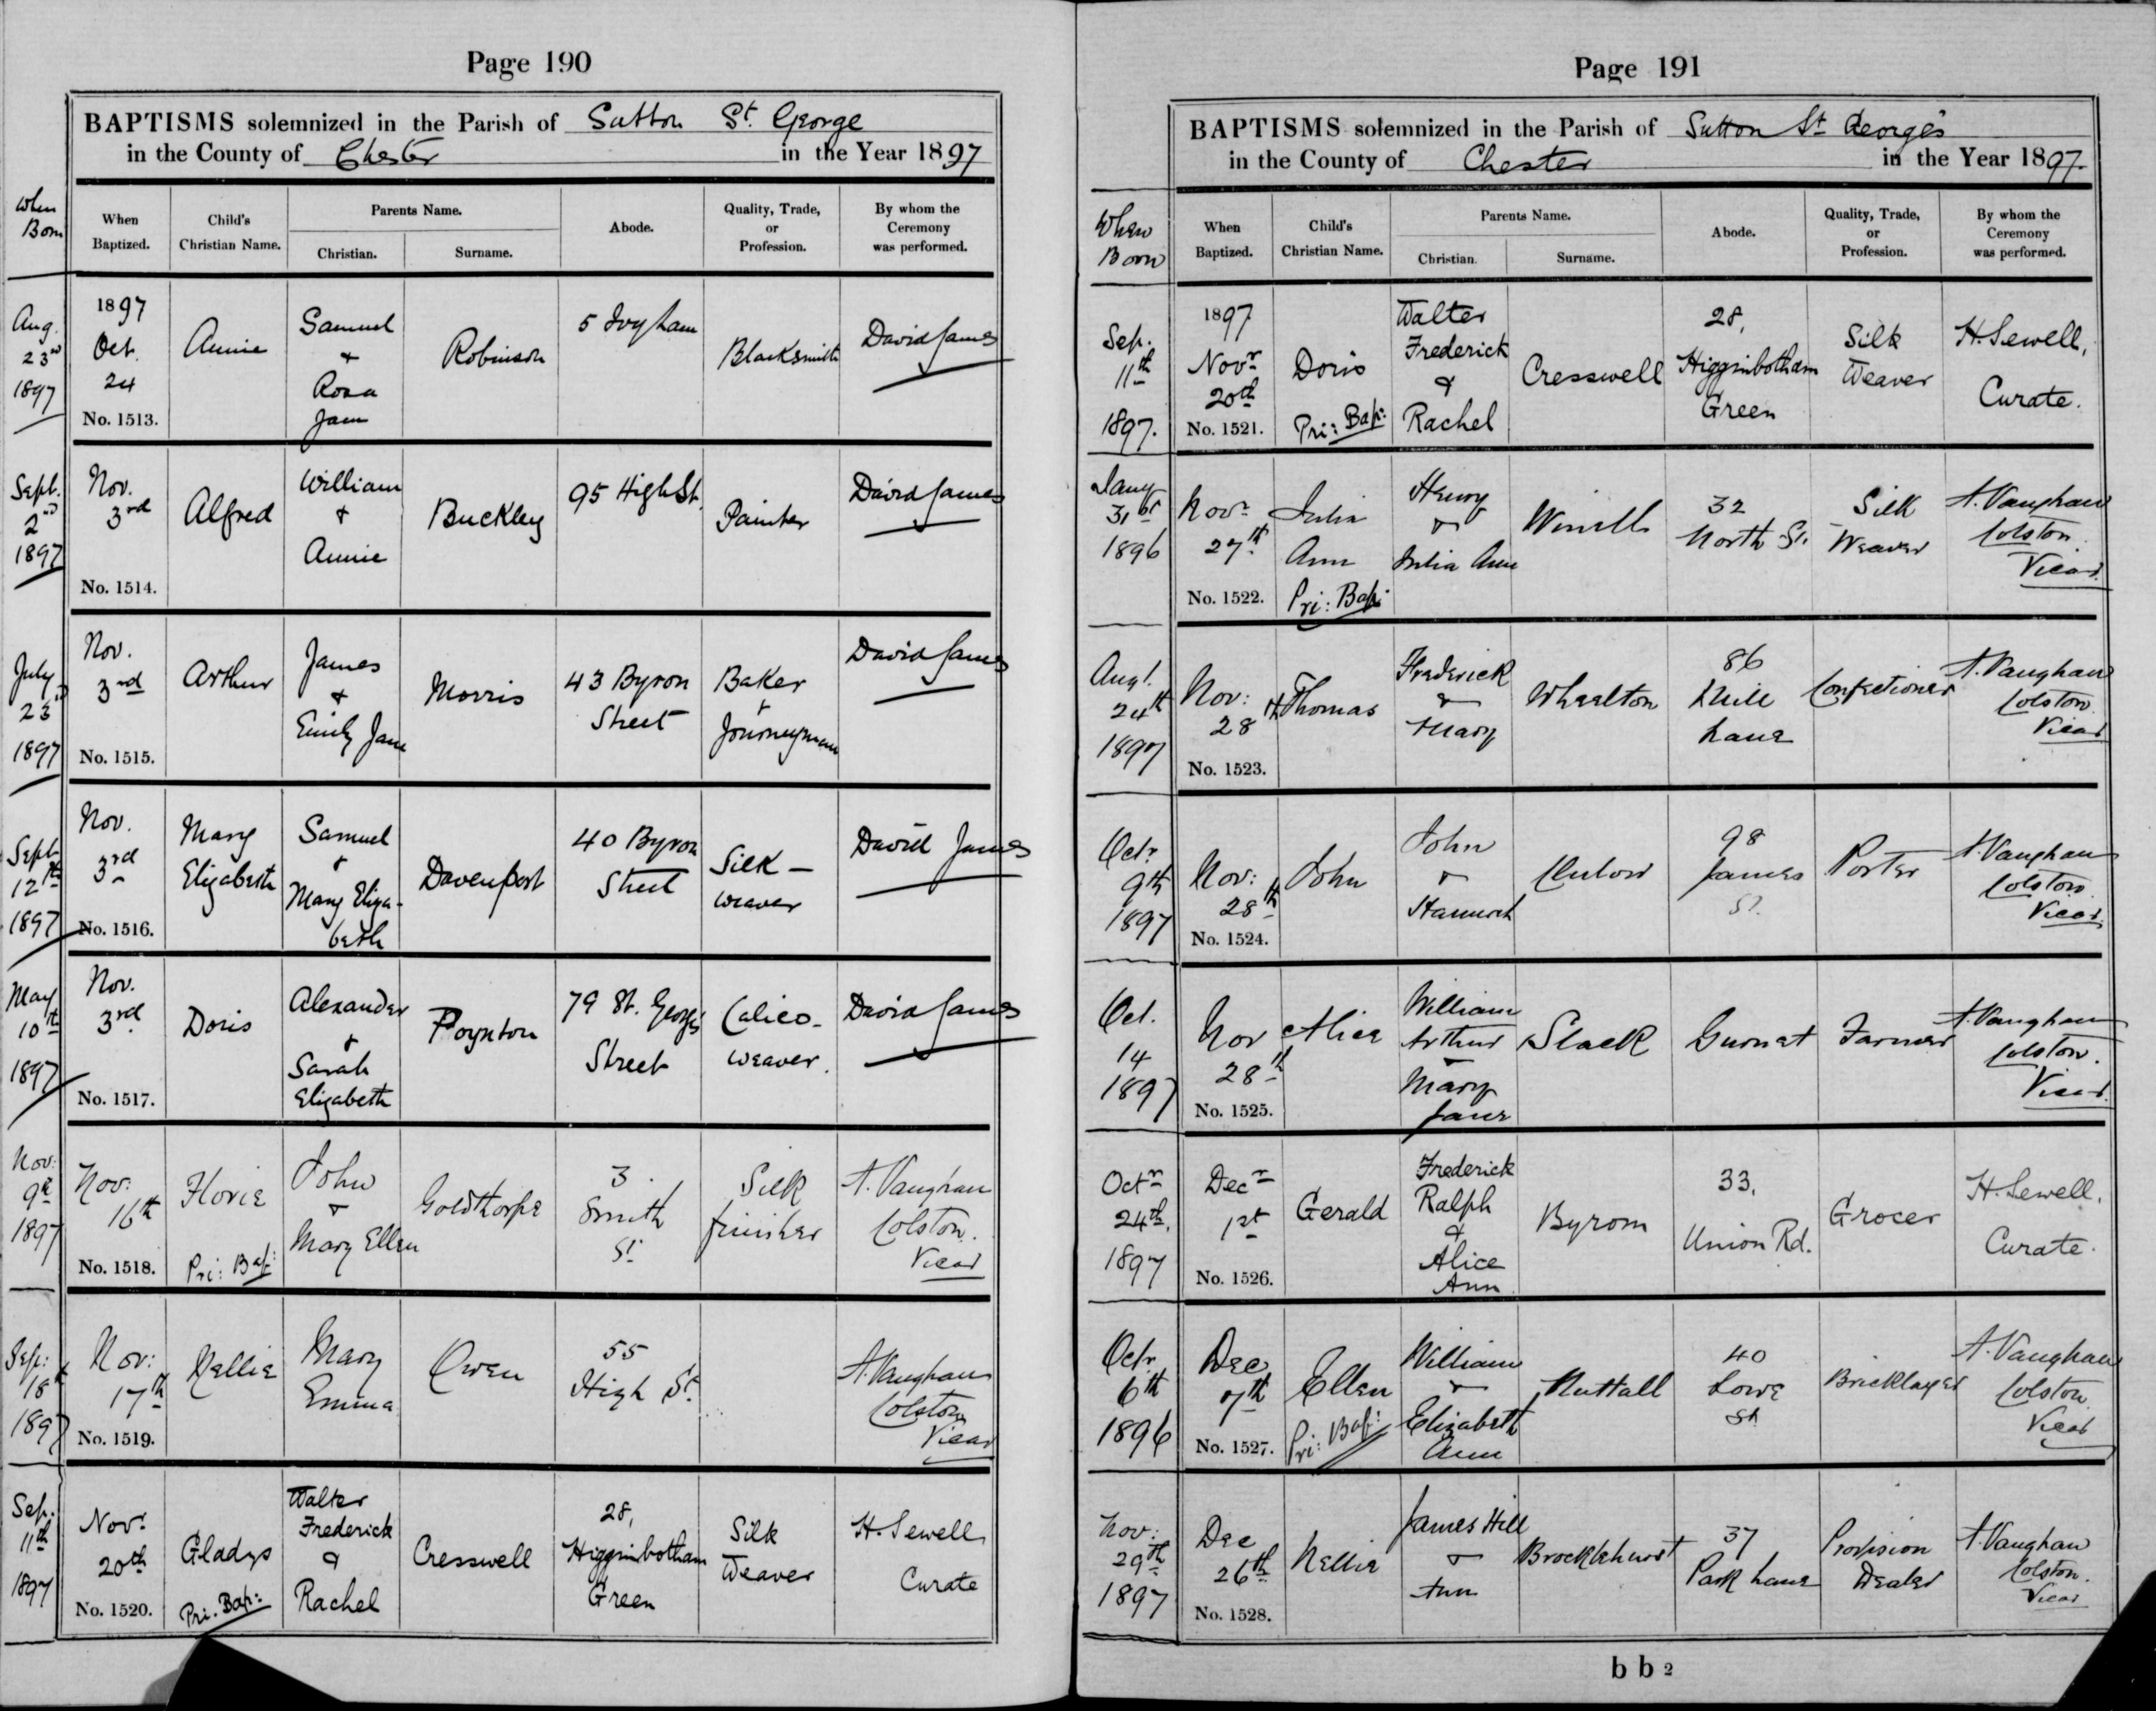 Page 190
BAPTISMS solemnized in the Parish of Sutton St. George
in the County of Chester in the Year 1897
When Born
When Baptized.
Child's Christian Name.
Parents Name.
Christian.
Surname.
Abode.
Quality, Trade, or Profession.
By whom the Ceremony was performed.
Aug. 23rd 1897
1897 Oct. 24
No. 1513.
Annie
Samuel & Rosa Jane
Robinson
5 Ivy ham
Blacksmith
David James
Sept. 2nd 1897
Nov. 3rd
No. 1514.
Alfred
William & Annie
Buckley
95 High St.
Painter
David James
July 23rd 1897
Nov. 3rd
No. 1515.
Arthur
James & Emily Jane
Morris
43 Byron Street
Baker & Journeyman
David James
Sept. 12th 1897
Nov. 3rd
No. 1516.
Mary Elizabeth
Samuel & Mary Eliza-beth
Davenport
40 Byron Street
Silk - weaver
David James
May 10th 1897
Nov. 3rd
No. 1517.
Doris
Alexander & Sarah Elizabeth
Poynton
79 St. George's Street
Calico - weaver.
David James
Nov: 9th 1897
Nov: 16th
No. 1518.
Florie
Pri: Bap:
John & Mary Ellen
Goldthorpe
3 Smith St.
Silk finisher
A. Vaughan Colston. Vicar
Sep: 18th 1897
Nov: 17th
No. 1519.
Nellie
Mary Emma
Owen
55 High St.
A. Vaughan Colston Vicar
Sep. 11th 1897
Novr. 20th
No. 1520.
Gladys
Pri. Bap:
Walter Frederick & Rachel
Cresswell
28, Higginbotham Green
Silk Weaver
H. Sewell Curate
Page 191
BAPTISMS solemnized in the Parish of Sutton St. George's
in the County of Chester in the Year 1897.
When Born
When Baptized.
Child's Christian Name.
Parents Name.
Christian.
Surname.
Abode.
Quality, Trade, or Profession.
By whom the Ceremony was performed.
Sep. 11th 1897.
1897 Novr. 20th
No. 1521.
Doris
Pri: Bap:
Walter Frederick & Rachel
Cresswell
28, Higginbotham Green
Silk Weaver
H. Sewell, Curate.
Jany 31st 1896
Novr. 27th
No. 1522.
Julia Ann
Pri: Bap:
Henry & Julia Ann
32 North St.
Silk Weaver
A. Vaughan Colston. Vicar.
Augt. 24th 1897
Nov: 28th
No. 1523.
Thomas
Frederick & Mary
Wheelton
86 Mill Lane
Confectioner
A. Vaughan Colston. Vicar
Octr. 9th 1897
Nov: 28th
No. 1524.
John
John & Hannah
Clulow
98 James St.
Porter
A. Vaughan Colston. Vicar
Oct. 14 1897
Nov 28th
No. 1525.
Alice
William Arthur & Mary Jane
Slack
Gurnet
Farmer
A. Vaughan Colston. Vicar.
Octr 24th. 1897
Decr 1st
No. 1526.
Gerald
Frederick Ralph & Alice Ann
Byrom
33, Union Rd.
Grocer
H. Sewell, Curate.
Octr. 6th 1896
Dec 7th
No. 1527.
Ellen
Pri: Bap:
William & Elizabeth Ann
Nuttall
40 Lowe St.
Bricklayer
A. Vaughan Colston Vicar
Nov: 29th 1897
Dec 26th
No. 1528.
Nellie
James Hill & Ann
Brocklehurst
37 Park Lane
Provision Dealer
A. Vaughan Colston. Vicar
b b 2